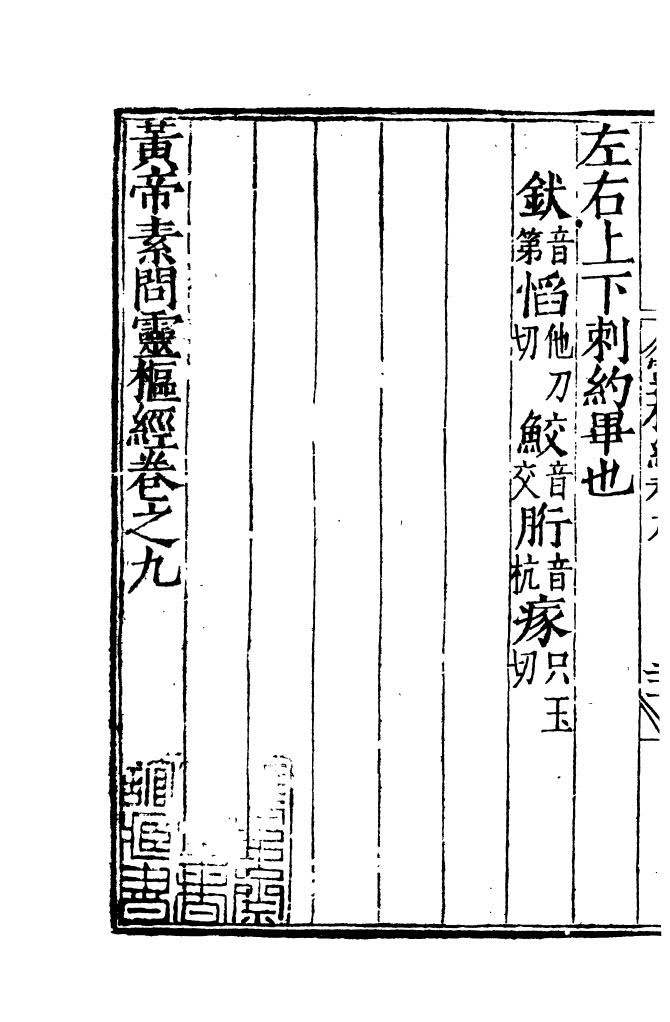 左右上下刺約畢也
釱音第慆他刀切鮫音交胻音杭瘃只玉切
黃帝素問靈樞經卷之九